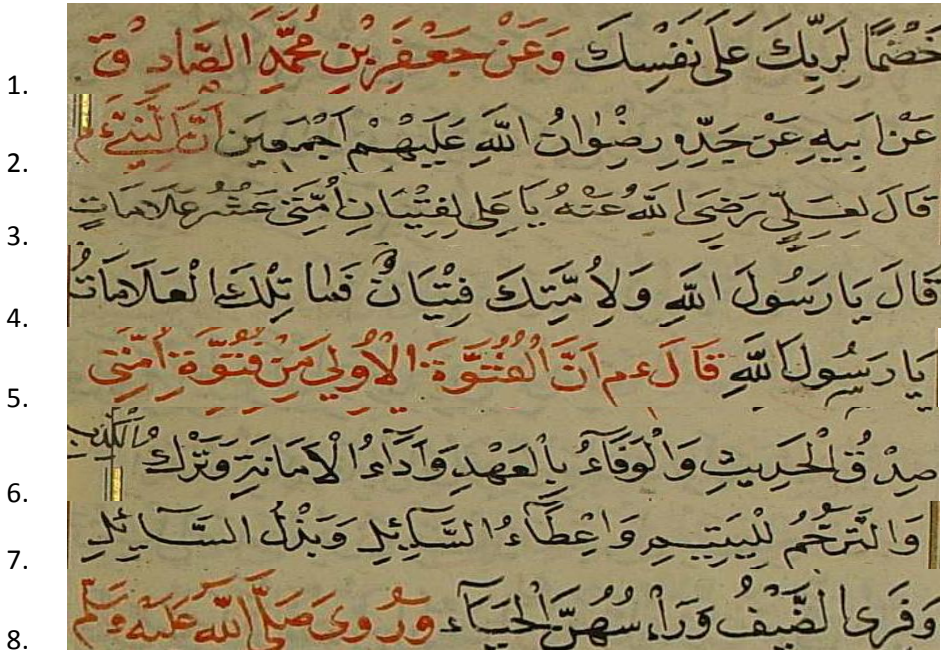 1. خَصْمًا لِرَبِّكَ عَلَى نَفْسِكَ وَعَنْ جَعْفَرِ بْنِ مُحَمَّدِ الصَّادِقِ
2. عَنْ اَبِيهِ عَنْ جَدِّهِ رِضْوَانُ اللَّهِ عَلَيْهِمْ اَجْمَعِينَ اَنَّ النَّبِيَّ عم
3. قَالَ لِعَلِيٍّ رَضِيَ اللَّهُ عَنْهُ يَا عَلِى لِفِتْيَانِ اُمَّتِى عَشْرُ عَلَامَاتٍ
4. قَالَ يَا رَسُولَ اللَّهِ وَلِاُمَّتِكَ فِتْيَانٌ فَمَا تِلْكَ الْعَلَامَاتُ
5. يَا رَسُولَ اللَّهِ قَالَ عم اَنَّ الْفُتُوَّةَ الْاُولِي مِنْ فُتُوَّةِ اُمَّتِى
6. صِدْقُ الْحَدِيثِ وَالْوَفَاءُ بِالْعَهْدِ وَاَدَاءُ الْاَمَانَةِ وَتَرْكُ الْكَذِبِ
7. وَالتَّرَحُّمُ لِلْيَتِيمِ وَاِعْطَاءُ السَّائِلِ وَبَذْلُ السَّائِلِ
8. وَقَرَى الضَّيْفُ وَرَاْسُهُنَّ الْحَيَاءُ وَرُوِىَ صَلَّى اللَّهُ عَلَيْهِ وَسَلَّم